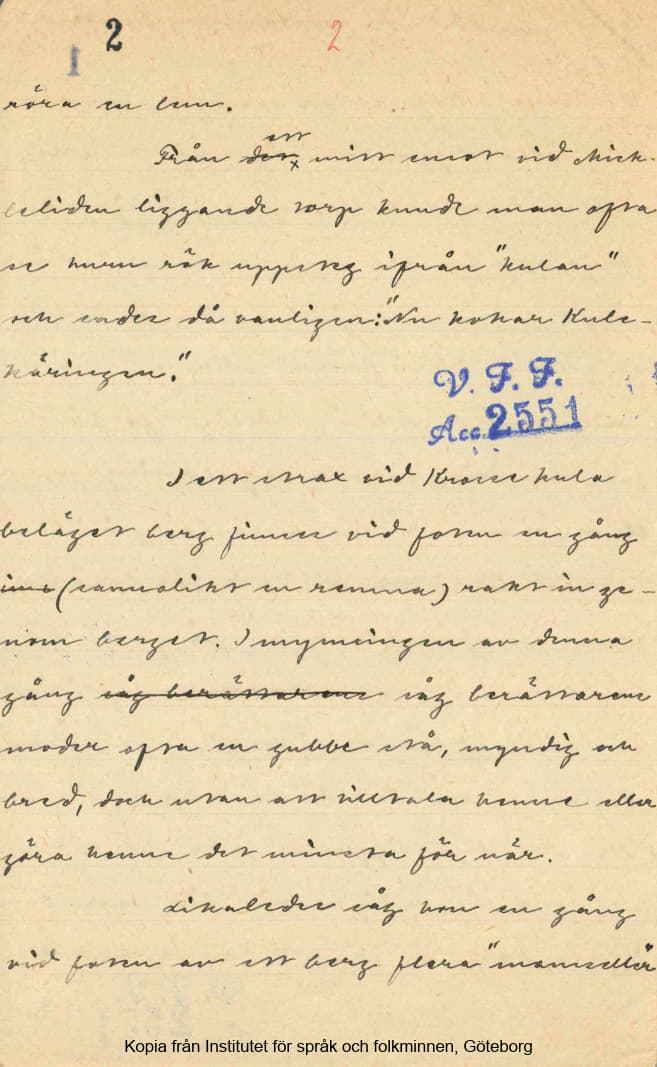 2 2
1
röra en lem.
ett
Från det x mitt emot vid Mick-
eliden liggande torp kunde man ofta
se huru rök uppsteg ifrån "kulan"
och sades då vanligen: "Nu kokar Kule-
käringen."
V. F. F.
Acc. 2551
I ett strax vid Krosse kula
beläget berg finnes vid foten en gång
(sannolikt en remna) rakt in ge-
nom berget. I mynningen av denna
gång såg berättarens såg berättarens
moder ofta en gubbe stå, myndig och
bred, doch utan att tilltala henne eller
göra henne det minsta för när.
Likaledes såg hon en gång
vid foten av ett berg flera "mamseller"
Kopia från Institutet för språk och folkminnen, Göteborg